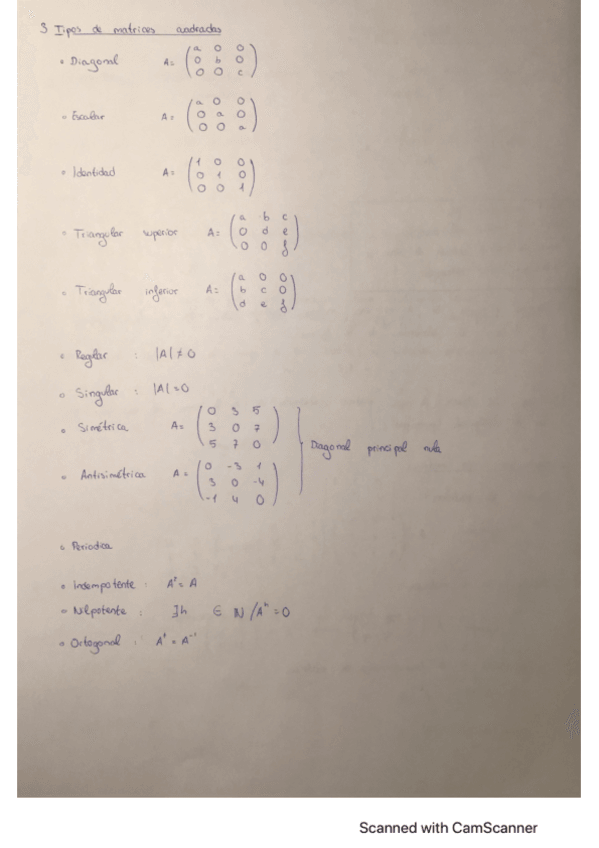 3 Tipos de matrices cuadradas
• Diagonal A= (a 0 0
0 b 0
0 0 c)
• Escalar A= (a 0 0
0 a 0
0 0 a)
• Identidad A= (1 0 0
0 1 0
0 0 1)
• Triangular superior A= (a b c
0 d e
0 0 f)
• Triangular inferior A= (a 0 0
b c 0
d e f)
• Regular : |A| ≠ 0
• Singular : |A| = 0
• Simétrica A= (0 3 5
3 0 7
5 7 0)
Diagonal principal nula
• Antisimétrica A= (0 -3 1
3 0 -4
-1 4 0)
• Periodica
• Indempotente :
• Nilpotente : ∃h ∈ N / Aʰ = 0
• Ortogonal : Aᵗ = A⁻¹
Scanned with CamScanner